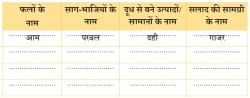 फलों के नाम साग-भाजियों के नाम दूध से बने उत्पादों/सामानों के नाम सलाद की सामग्री के नाम
आम परवल दही गाजर